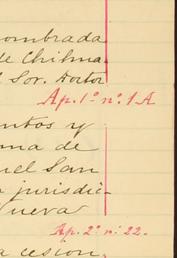 ombrada
de Chilma-
l Sor. Doctor
Ap. 1º nº. 1 A
entos y
ma de
uel San
a jurisdic-
ueva
Ap. 2º nº. 22.
a cesion,